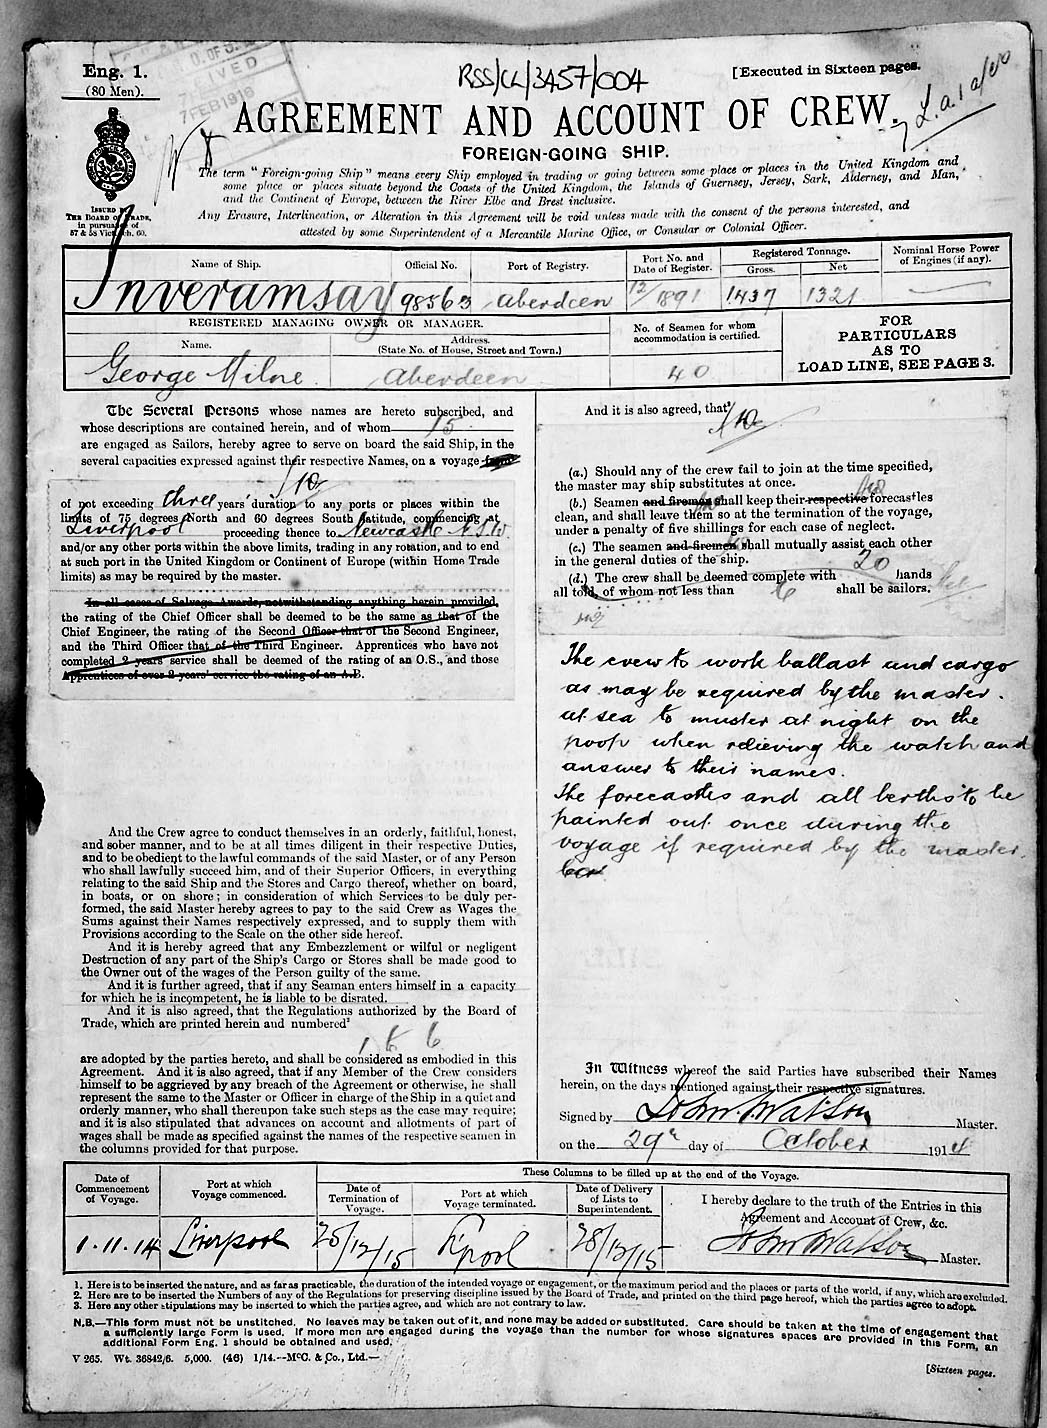 Eng. 1.
(80 Men).
7 FEB 1916
RSS/CL/3457/004
[Executed in Sixteen pages.
AGREEMENT AND ACCOUNT OF CREW.
FOREIGN-GOING SHIP.
The term "Foreign-going Ship" means every Ship employed in trading or going between some place or places in the United Kingdom and
some place or places situate beyond the Coasts of the United Kingdom, the Islands of Guernsey, Jersey, Sark, Alderney, and Man,
and the Continent of Europe, between the River Elbe and Brest inclusive.
Any Erasure, Interlineation, or Alteration in this Agreement will be void unless made with the consent of the persons interested, and
attested by some Superintendent of a Mercantile Marine Office, or Consular or Colonial Officer.
ISSUED BY
THE BOARD OF TRADE,
in pursuance of
57 & 58 Vict. ch. 60.
Name of Ship. Official No. Port of Registry. Port No. and Date of Register. Registered Tonnage. Gross. Net Nominal Horse Power of Engines (if any).
Inveramsay 98563 Aberdeen 12/1891 1437 1321
REGISTERED MANAGING OWNER OR MANAGER.
Name. Address. (State No. of House, Street and Town.)
No. of Seamen for whom accommodation is certified.
FOR
PARTICULARS
AS TO
LOAD LINE, SEE PAGE 3.
George Milne Aberdeen 40
The Several Persons whose names are hereto subscribed, and
whose descriptions are contained herein, and of whom 15
are engaged as Sailors, hereby agree to serve on board the said Ship, in the
several capacities expressed against their respective Names, on a voyage from
of not exceeding three years' duration to any ports or places within the
limits of 75 degrees North and 60 degrees South latitude, commencing at
Liverpool proceeding thence to Newcastle N.S.W.
and/or any other ports within the above limits, trading in any rotation, and to end
at such port in the United Kingdom or Continent of Europe (within Home Trade
limits) as may be required by the master.
In all cases of Salvage Awards, notwithstanding anything herein provided,
the rating of the Chief Officer shall be deemed to be the same as that of the
Chief Engineer, the rating of the Second Officer that of the Second Engineer,
and the Third Officer that of the Third Engineer. Apprentices who have not
completed 2 years' service shall be deemed of the rating of an O.S., and those
Apprentices of over 2 years' service the rating of an A.B.
And the Crew agree to conduct themselves in an orderly, faithful, honest,
and sober manner, and to be at all times diligent in their respective Duties,
and to be obedient to the lawful commands of the said Master, or of any Person
who shall lawfully succeed him, and of their Superior Officers, in everything
relating to the said Ship and the Stores and Cargo thereof, whether on board,
in boats, or on shore; in consideration of which Services to be duly per-
formed, the said Master hereby agrees to pay to the said Crew as Wages the
Sums against their Names respectively expressed, and to supply them with
Provisions according to the Scale on the other side hereof.
And it is hereby agreed that any Embezzlement or wilful or negligent
Destruction of any part of the Ship's Cargo or Stores shall be made good to
the Owner out of the wages of the Person guilty of the same.
And it is further agreed, that if any Seaman enters himself in a capacity
for which he is incompetent, he is liable to be disrated.
And it is also agreed, that the Regulations authorized by the Board of
Trade, which are printed herein and numbered²
1 to 6
are adopted by the parties hereto, and shall be considered as embodied in this
Agreement. And it is also agreed, that if any Member of the Crew considers
himself to be aggrieved by any breach of the Agreement or otherwise, he shall
represent the same to the Master or Officer in charge of the Ship in a quiet and
orderly manner, who shall thereupon take such steps as the case may require;
and it is also stipulated that advances on account and allotments of part of
wages shall be made as specified against the names of the respective seamen in
the columns provided for that purpose.
And it is also agreed, that³
(a.) Should any of the crew fail to join at the time specified,
the master may ship substitutes at once.
(b.) Seamen and firemen shall keep their respective forecastles
clean, and shall leave them so at the termination of the voyage,
under a penalty of five shillings for each case of neglect.
(c.) The seamen and firemen shall mutually assist each other
in the general duties of the ship.
(d.) The crew shall be deemed complete with 20 hands
all told, of whom not less than 6 shall be sailors.
The crew to work ballast and cargo
as may be required by the master.
at sea to muster at night on the
poop when relieving the watch and
answer to their names.
The forecastles and all berths to be
painted out once during the
voyage if required by the master.
In Witness whereof the said Parties have subscribed their Names
herein, on the days mentioned against their respective signatures.
Signed by John Watson Master.
on the 29th day of October 1914
These Columns to be filled up at the end of the Voyage.
Date of Commencement of Voyage. Port at which Voyage commenced. Date of Termination of Voyage. Port at which Voyage terminated. Date of Delivery of Lists to Superintendent.
I hereby declare to the truth of the Entries in this
Agreement and Account of Crew, &c.
1.11.14 Liverpool 25/12/15 L'pool 28/12/15 John Watson Master.
1. Here is to be inserted the nature, and as far as practicable, the duration of the intended voyage or engagement, or the maximum period and the places or parts of the world, if any, which are excluded.
2. Here are to be inserted the Numbers of any of the Regulations for preserving discipline issued by the Board of Trade, and printed on the third page hereof, which the parties agree to adopt.
3. Here any other stipulations may be inserted to which the parties agree, and which are not contrary to law.
N.B.—This form must not be unstitched. No leaves may be taken out of it, and none may be added or substituted. Care should be taken at the time of engagement that
a sufficiently large Form is used. If more men are engaged during the voyage than the number for whose signatures spaces are provided in this Form, an
additional Form Eng. 1 should be obtained and used.
V 265. Wt. 36842/6. 5,000. (46) 1/14.—McC. & Co., Ltd.—
[Sixteen pages.